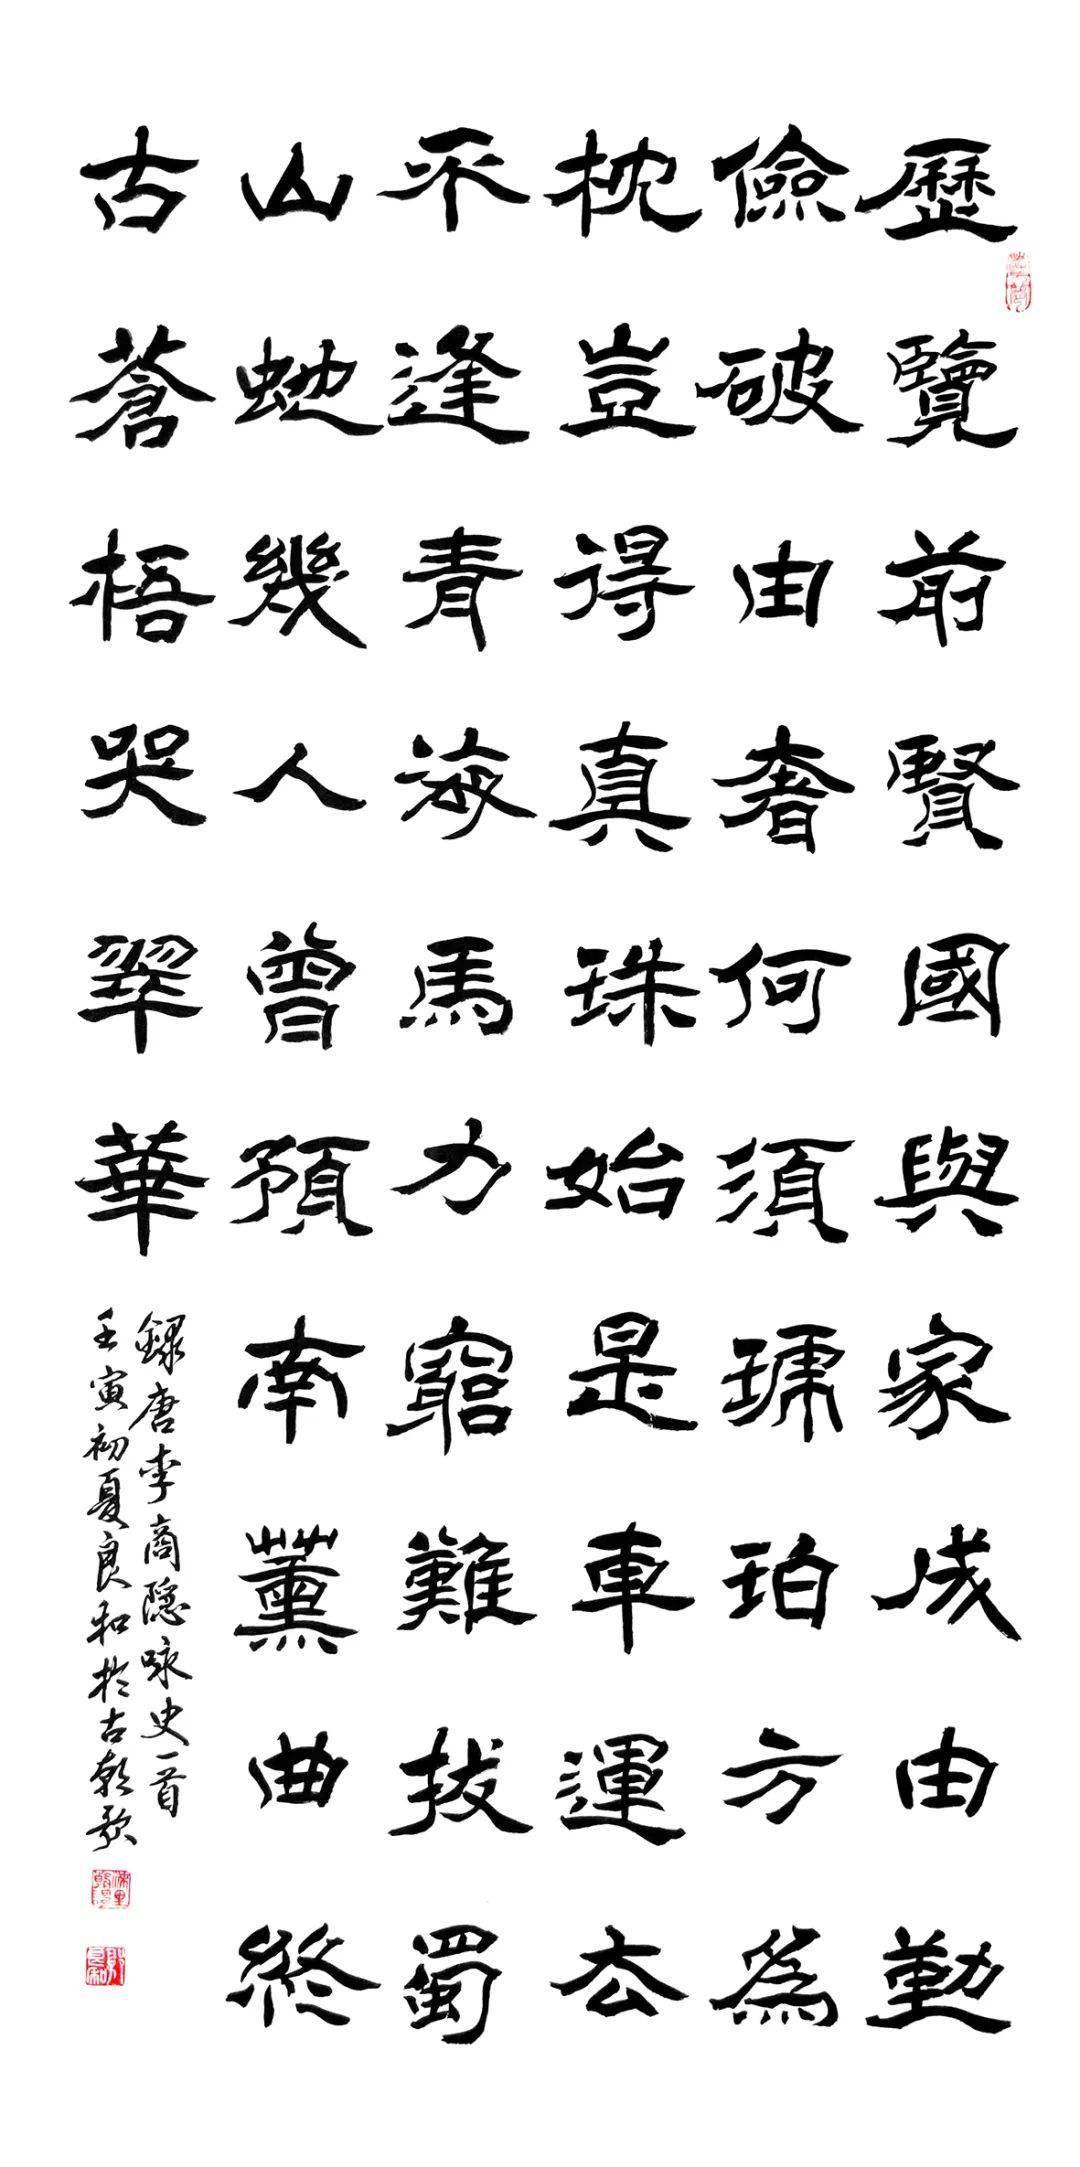 歷覽前賢國與家成由勤
儉破由奢何須琥珀方為
枕豈得真珠始是車運去
不逢青海馬力窮難拔蜀
山虵幾人曾預南薰曲終
古蒼梧哭翠華
録唐李商隐咏史一首
壬寅初夏良和於古朝歌